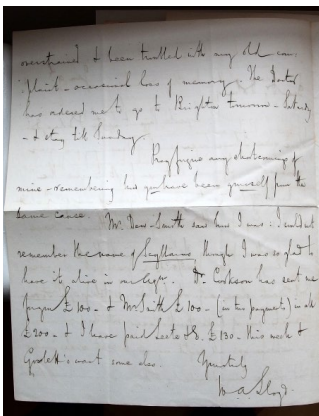 overstrained & been troubled with my old com-
plaint - occasional loss of memory. The Doctor
has ordered me to go to Brighton tomorrow - Saturday
- & stay till Sunday
Pray forgive any shortcomings of
mine - remembering how you have been yourself from the
same cause. Mr. Saw how I was: I could not
remember the name of though I was so glad to
have it alive in our. Dr. has sent me
£100 - & Mr Smith £100 - (in two payments) in all
£200 - & I have paid £130 - this week &
want some also.
Yours truly
W. A. Lloyd.